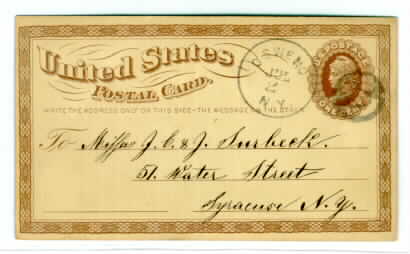 United States
POSTAL CARD.
WRITE THE ADDRESS ONLY ON THIS SIDE - THE MESSAGE ON THE OTHER
U.S. POSTAGE
ONE CENT
OSWEGO
2
N.Y.
To Messrs J. C. & J. Surbeck.
51. Water Street
Syracuse N.Y.